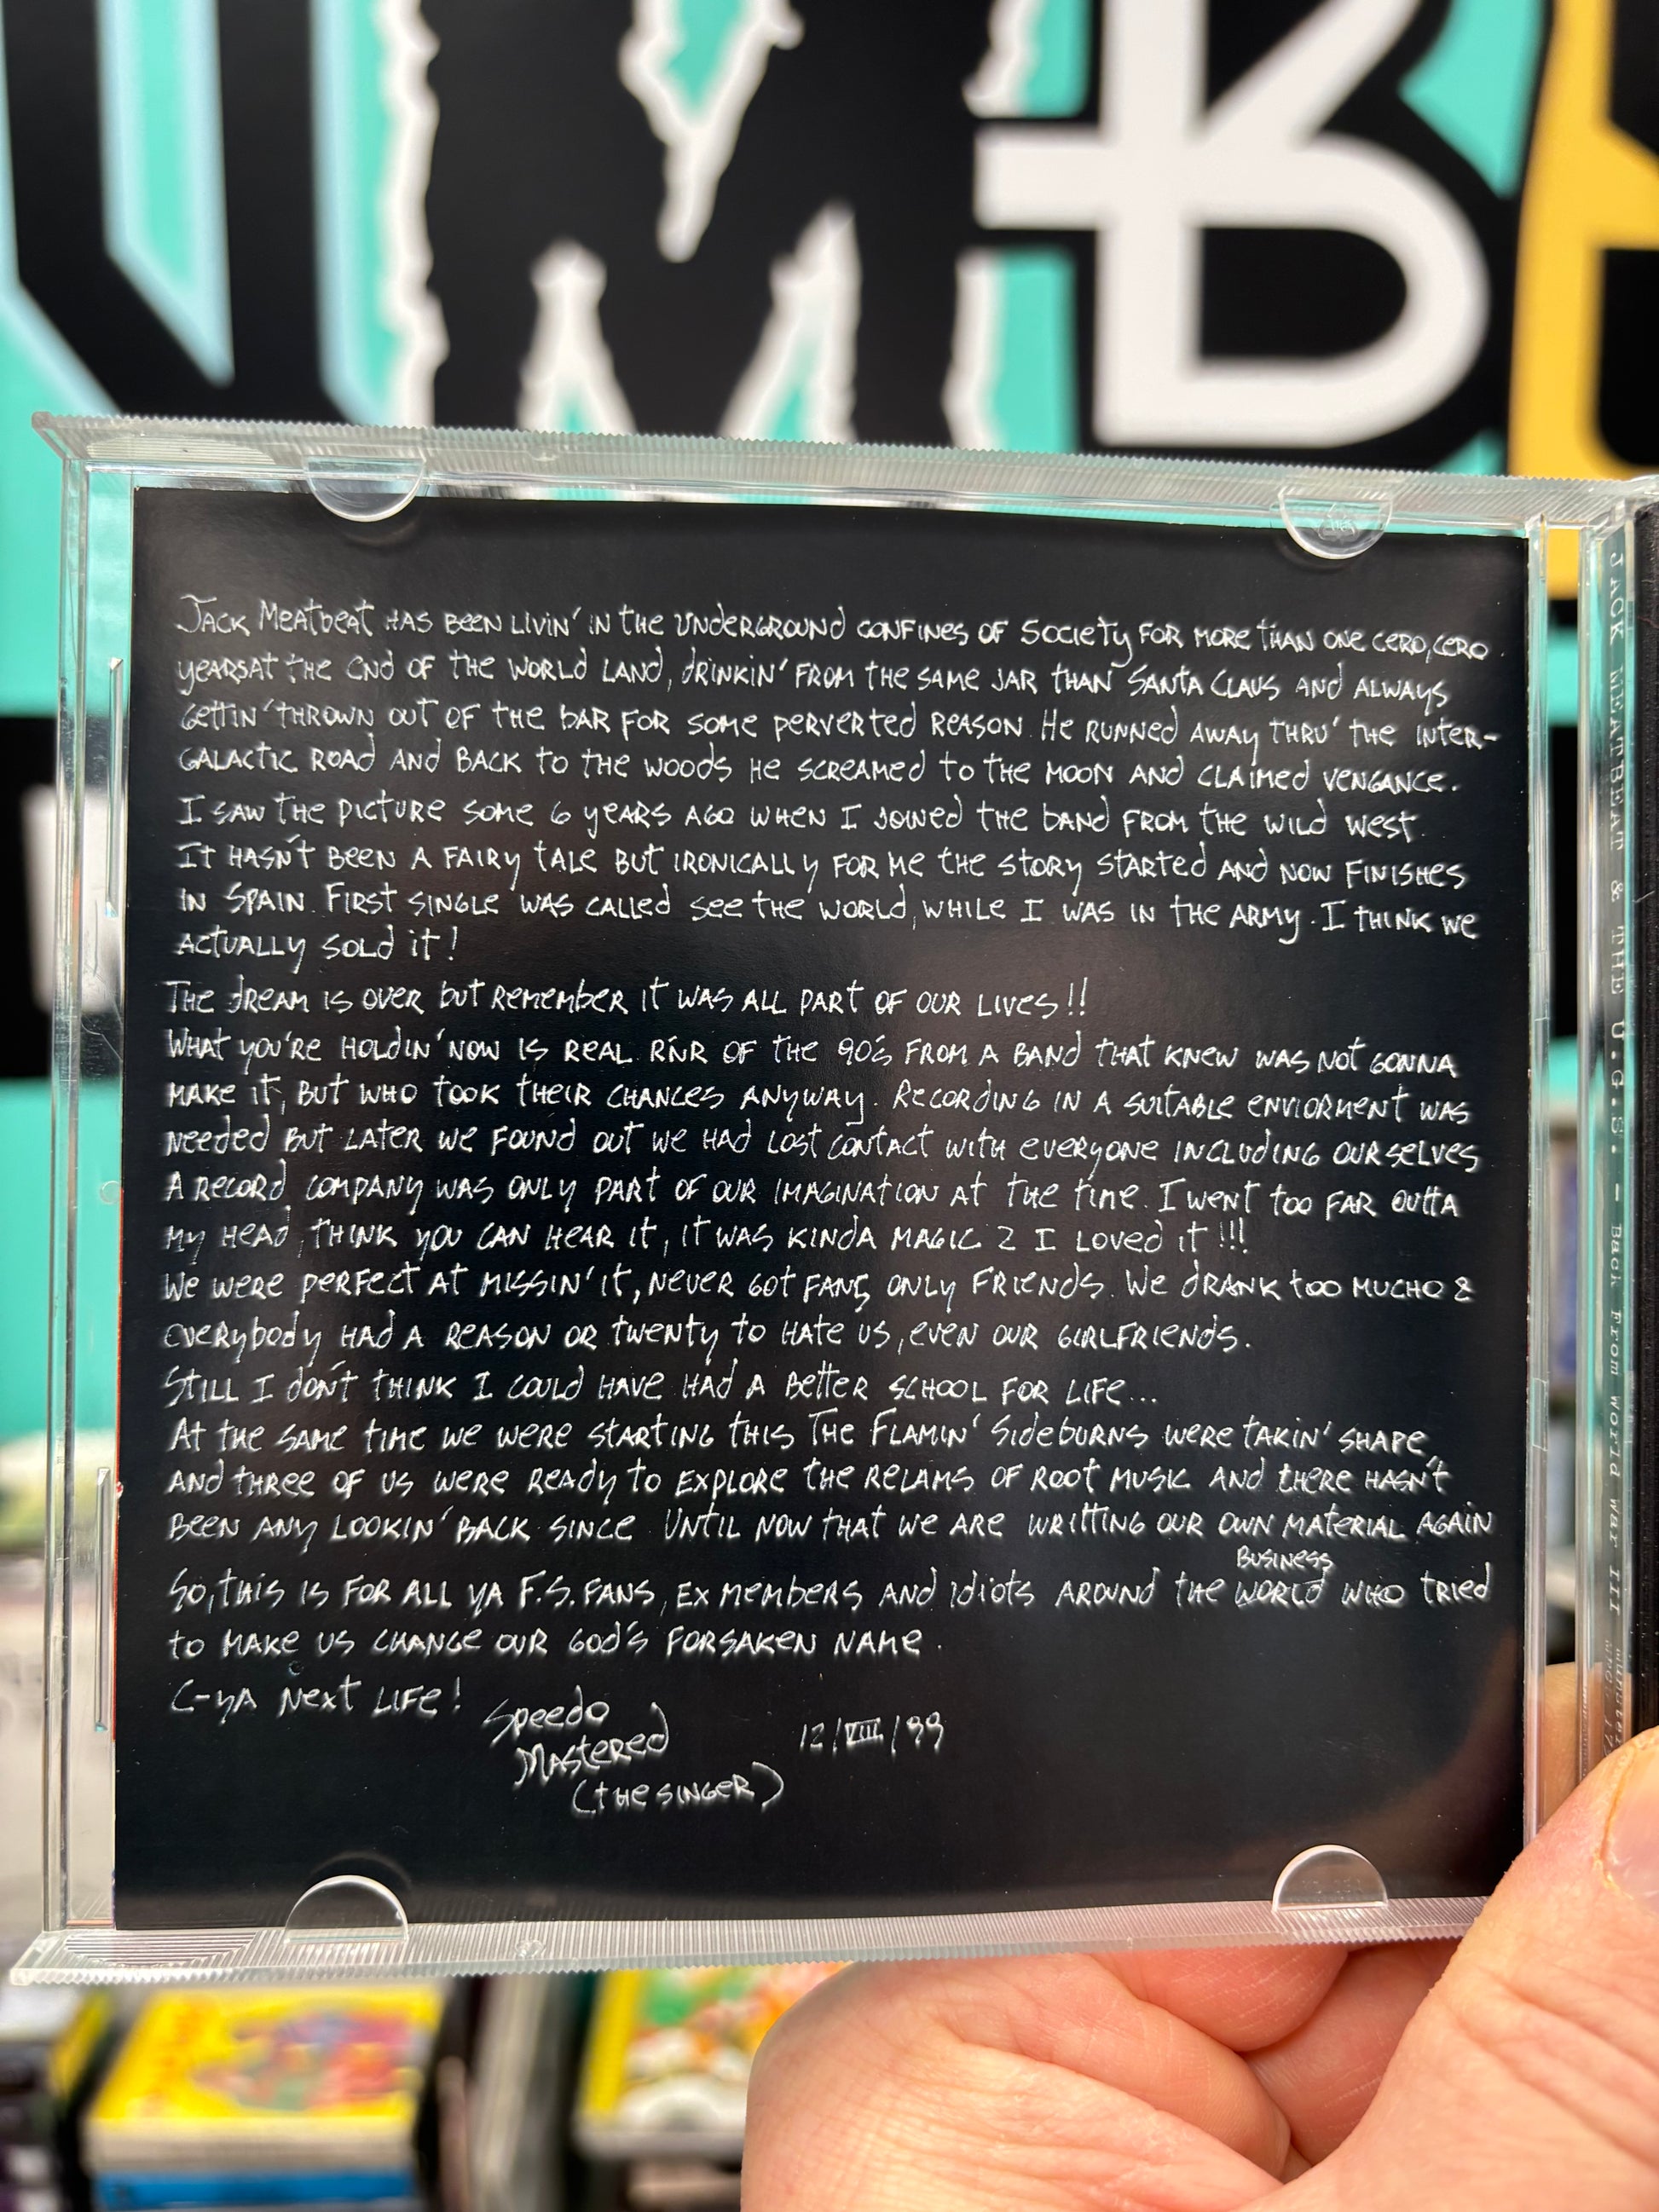 Jack Meatbeat has been livin' in the underground confines of society for more than one cero, cero
years at the end of the world land, drinkin' from the same jar than Santa Claus and always
gettin' thrown out of the bar for some perverted reason. He runned away thru' the inter-
galactic road and back to the woods he screamed to the moon and claimed vengance.
I saw the picture some 6 years ago when I joined the band from the wild west.
It hasn't been a fairy tale but ironically for me the story started and now finishes
in Spain. First single was called see the world, while I was in the army. I think we
actually sold it!
The dream is over but remember it was all part of our lives!!
What you're holdin' now is real R'n'R of the 90's from a band that knew was not gonna
make it, but who took their chances anyway. Recording in a suitable enviorment was
needed but later we found out we had lost contact with everyone including ourselves
A record company was only part of our imagination at the time. I went too far outta
my head, think you can hear it, it was kinda magic & I loved it!!!
We were perfect at missin' it, never got fans, only friends. We drank too mucho &
everybody had a reason or twenty to hate us, even our girlfriends.
Still I don't think I could have had a better school for life...
At the same time we were starting this The Flamin' Sideburns were takin' shape
and three of us were ready to explore the relams of root music and there hasn't
been any lookin' back since. Until now that we are writting our own material again
Business
So, this is for all ya F.S. fans, ex members and idiots around the world who tried
to make us change our god's forsaken name.
C-ya next life!
Speedo
Mastered
(the singer)
12/VIII/99
JACK MEATBEAT & THE U.G.S. - Back From World War III